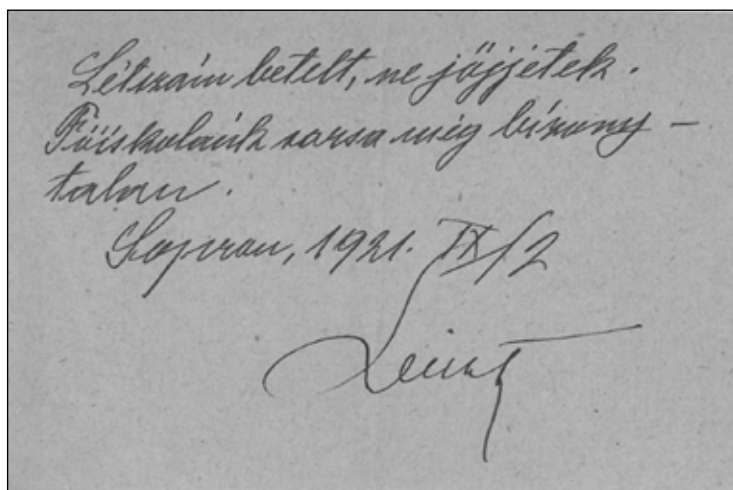 Létszám betelt, ne jöjjetek.
Főiskolánk sorsa még bizony-
talan.
Sopron, 1921. IX/2